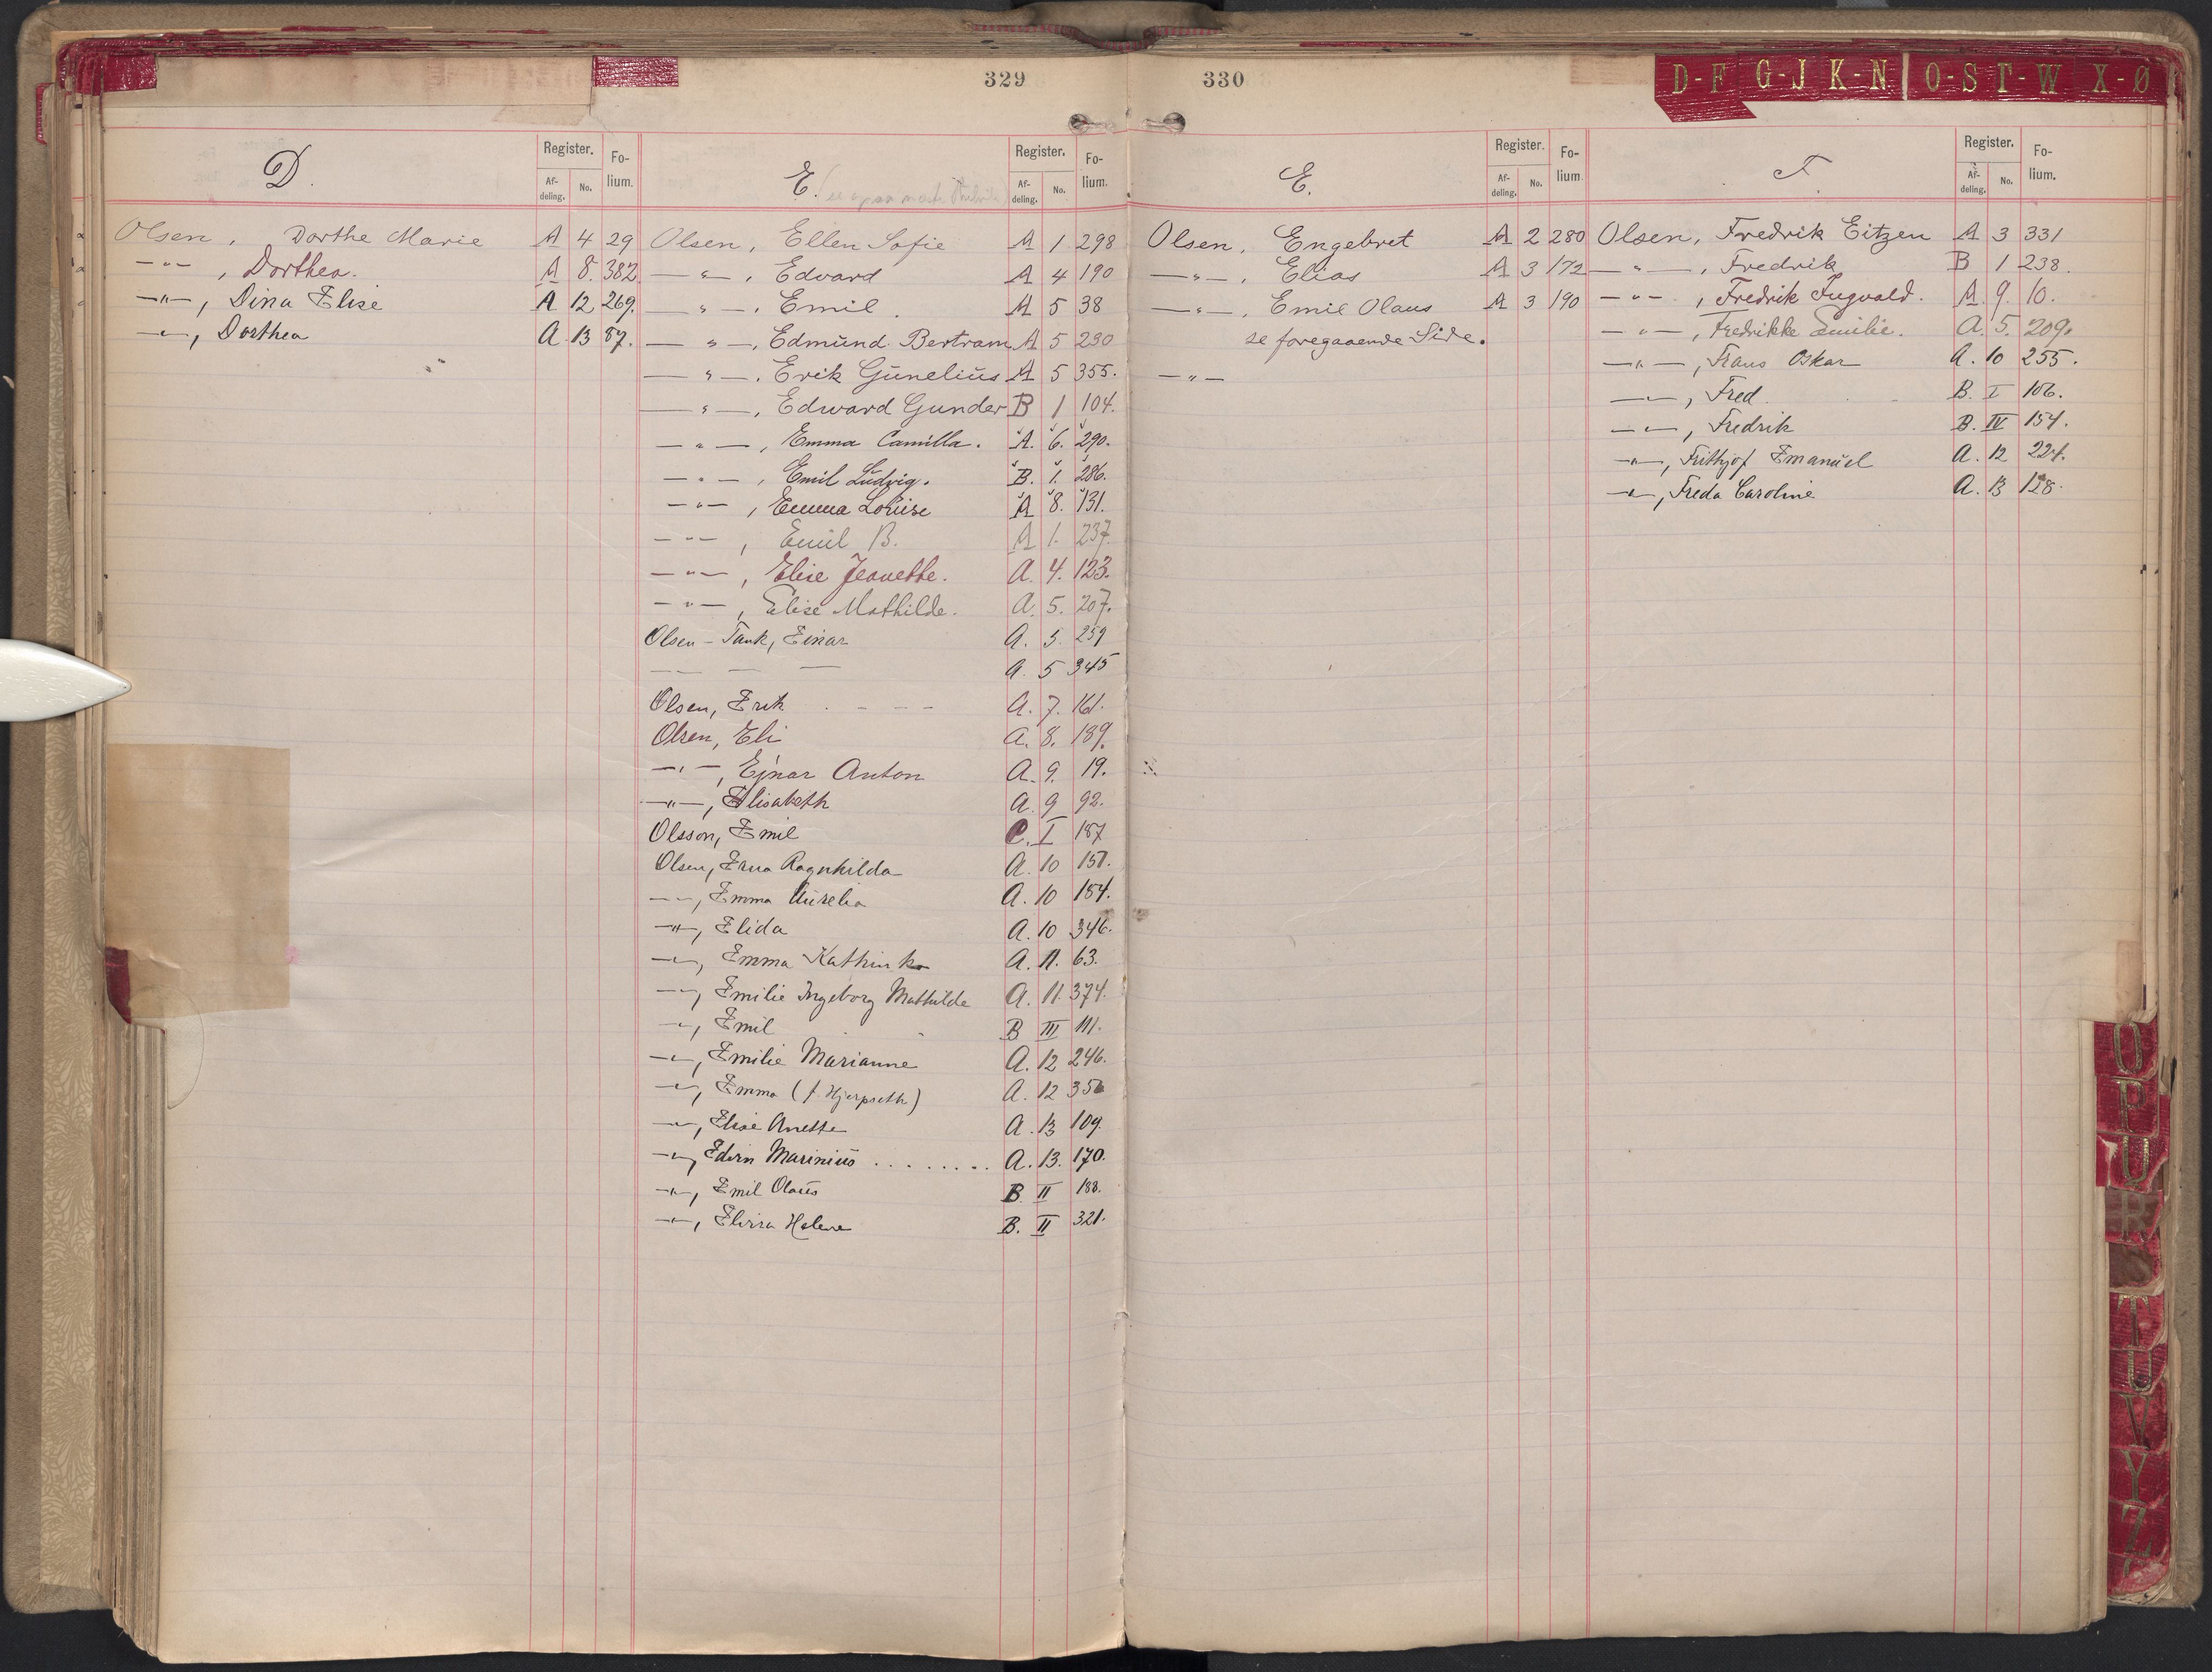 329
D.
Register.
Fo-
lium.
Af-
deling.
No.
Olsen, Dorthe Marie A 4 29
—"—, Dorthea. A 8. 382
—"—, Dina Elise A 12 269.
—"—, Dorthea A. 13 87.
E. (se ogsaa næste
Register.
Fo-
lium.
Af-
deling.
No.
Olsen, Ellen Sofie A 1 298
—"—, Edvard A 4 190
—"—, Emil. A 5 38
—"—, Edmund Bertram A 5 230
—"—, Erik Gunelius A 5 355.
—"—, Edward Gunder B 1 104.
—"—, Emma Camilla. A. 6. 290.
—"—, Emil Ludvig. B. 1. 286.
—"—, Emma Louise A 8. 131.
—"—, Emil B. A 1. 237.
—"—, Elise Jeanette. A. 4. 123.
—"—, Elise Mathilde. A. 5. 207.
Olsen-Tank, Einar A. 5. 259
— — — A. 5 345
Olsen, Erik A. 7. 161.
Olsen, Eli A. 8. 189.
—"—, Ejnar Anton A. 9. 19.
—"—, Elisabeth A. 9 92.
Olsson, Emil C. I 187
Olsen, Erna Ragnhilda A. 10 157.
—"—, Emma Aurelia A. 10 154.
—"—, Elida A. 10 346.
—"—, Emma Kathinka A. 11. 63.
—"—, Emilie Ingeborg Mathilde A. 11. 374.
—"—, Emil B III 111.
—"—, Emilie Marianne A. 12 246.
—"—, Emma (f. ) A. 12
—"—, Elise Anette A. 13 109.
—"—, Edvin Marinius ........ A. 13. 170.
—"—, Emil Olaus B II 188.
—"—, Helene B. II 321.
330
E.
Register.
Fo-
lium.
Af-
deling.
No.
Olsen, Engebret A 2 280
—"—, Elias A 3 172
—"—, Emil Olaus A 3 190
se foregaaende Side.
—"—
F
Register.
Fo-
lium.
Af-
deling.
No.
Olsen, Fredrik Eitzen A 3 331
—"—, Fredrik B 1 238.
—"—, Fredrik Ingvald. A. 9. 10.
—"—, Fredrikke Emilie. A. 5. 209.
—"—, Frans Oskar A. 10 255.
—"—, Fred. B. I 106.
—"—, Fredrik B. IV 154.
—"—, Frithjof Emanuel A. 12 224.
—"—, Freda Caroline A. 13 128.
D-F G-J K-N O-S T-W X-Ø
O
P
U
R
T
U
V
Y
Z